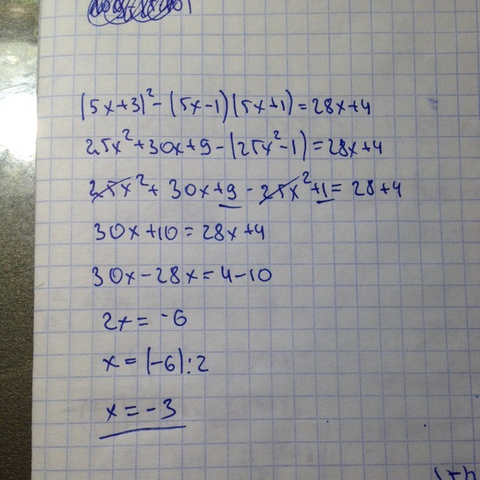 (5x+3)²-(5x-1)(5x+1)=28x+4
25x²+30x+9-(25x²-1)=28x+4
25x²+30x+9-25x²+1=28+4
30x+10=28x+4
30x-28x=4-10
2x=-6
x=(-6):2
x=-3